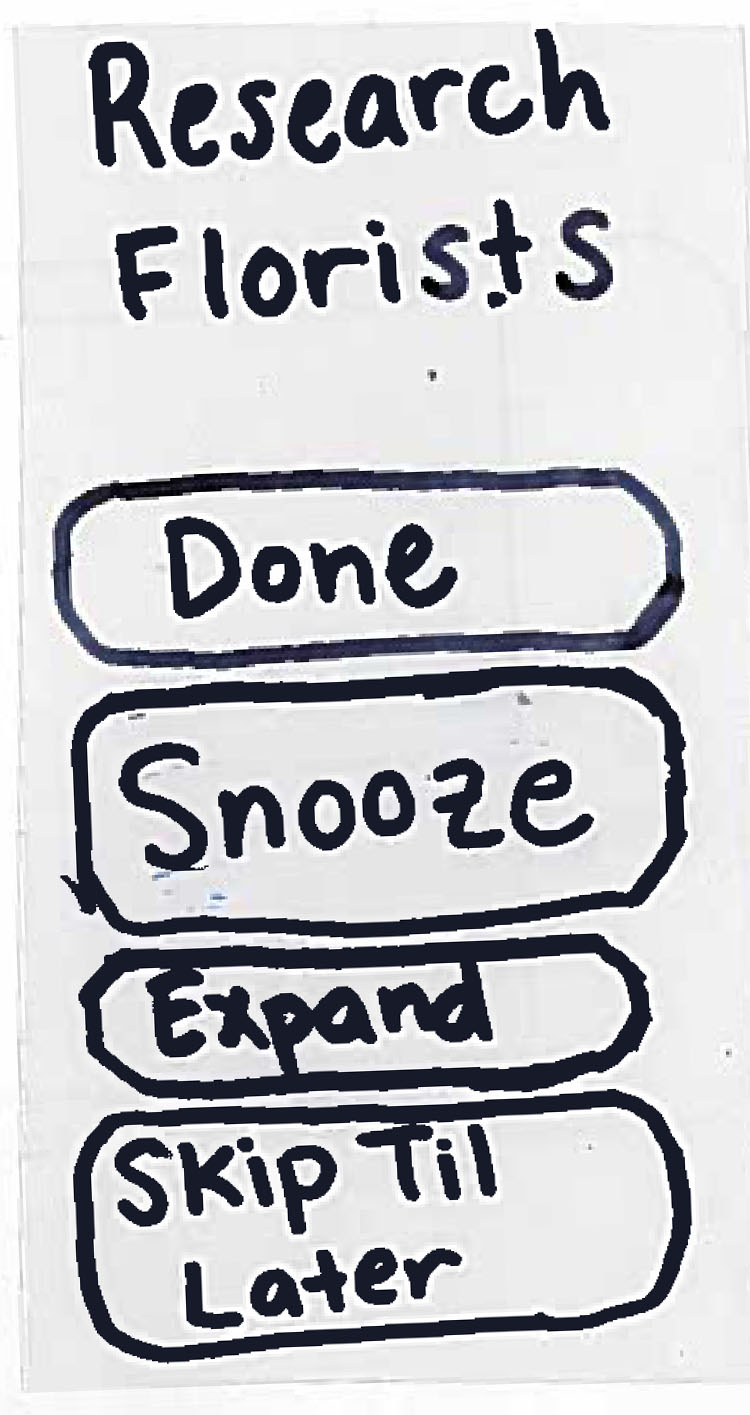 Research
Florists
Done
Snooze
Expand
Skip Til
Later